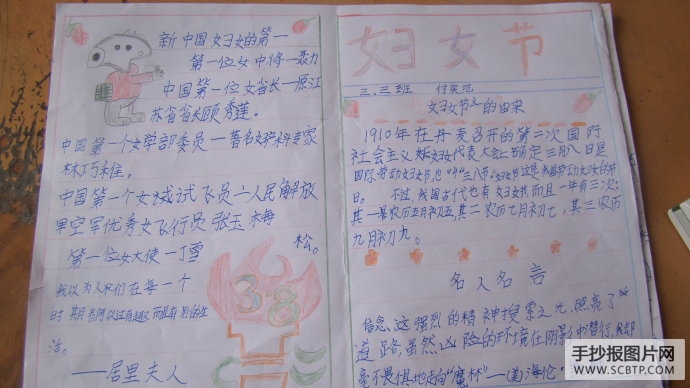 新中国妇女的第一
第一位女中将一聂力
中国第一位女省长一原江
苏省省长顾秀莲。
中国第一个女学部委员一著名妇产科专家
林巧稚。
中国第一个女试飞员一人民解放
空军优秀女飞行员张玉梅
松。
第一位女大使一丁雪
我以为人们在每一个
时期都可以过有趣而且有用的生
活。
——居里夫人
38
妇女节
三、三班
妇女节的由来
1910年在丹麦召开的第二次国际
社会主义妇女代表大会上确定三月八日是
国际劳动妇女节,也叫“三八节”妇女节这是我国劳动妇女的节
日。不过,我国古代也有妇女节而且一年有三次:
其一是农历五月初五,其二农历七月初七,其三农历
九月初九。
名人名言
信念,这强烈的精神搜索之光,照亮了
道路,虽然凶险的环境在阴影中潜行,我却
毫不畏惧地走向“魔林”—(美)海伦·
手抄报图片网
WWW.SCBTPJ.COM